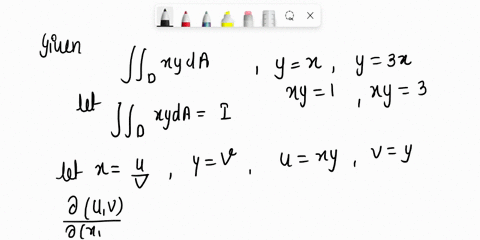 Given ∬_D xy dA , y = x , y = 3x
xy = 1 , xy = 3
let ∬_D xy dA = I
let x = u/v , y = v , u = xy , v = y
∂(u,v)/∂(x,